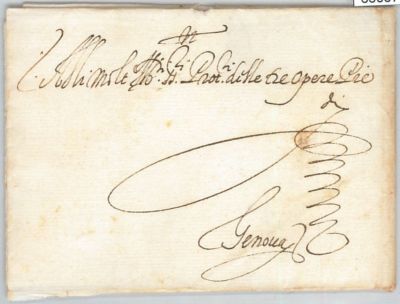 Alli Molt Ill.ri SS.ri Prot.ri delle tre Opere Pie
di
Genova